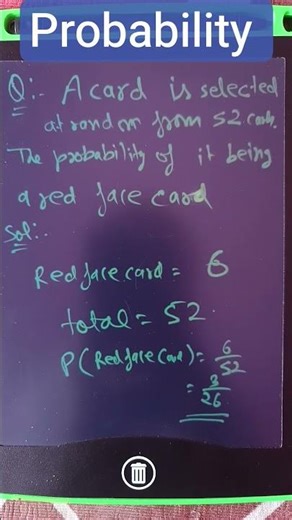 Probability
Q:- A card is selected
at random from 52 cards.
The probability of it being
a red face card
Sol:-
Red face card = 6
total = 52.
P(Red face Card) = 6/52
= 3/26